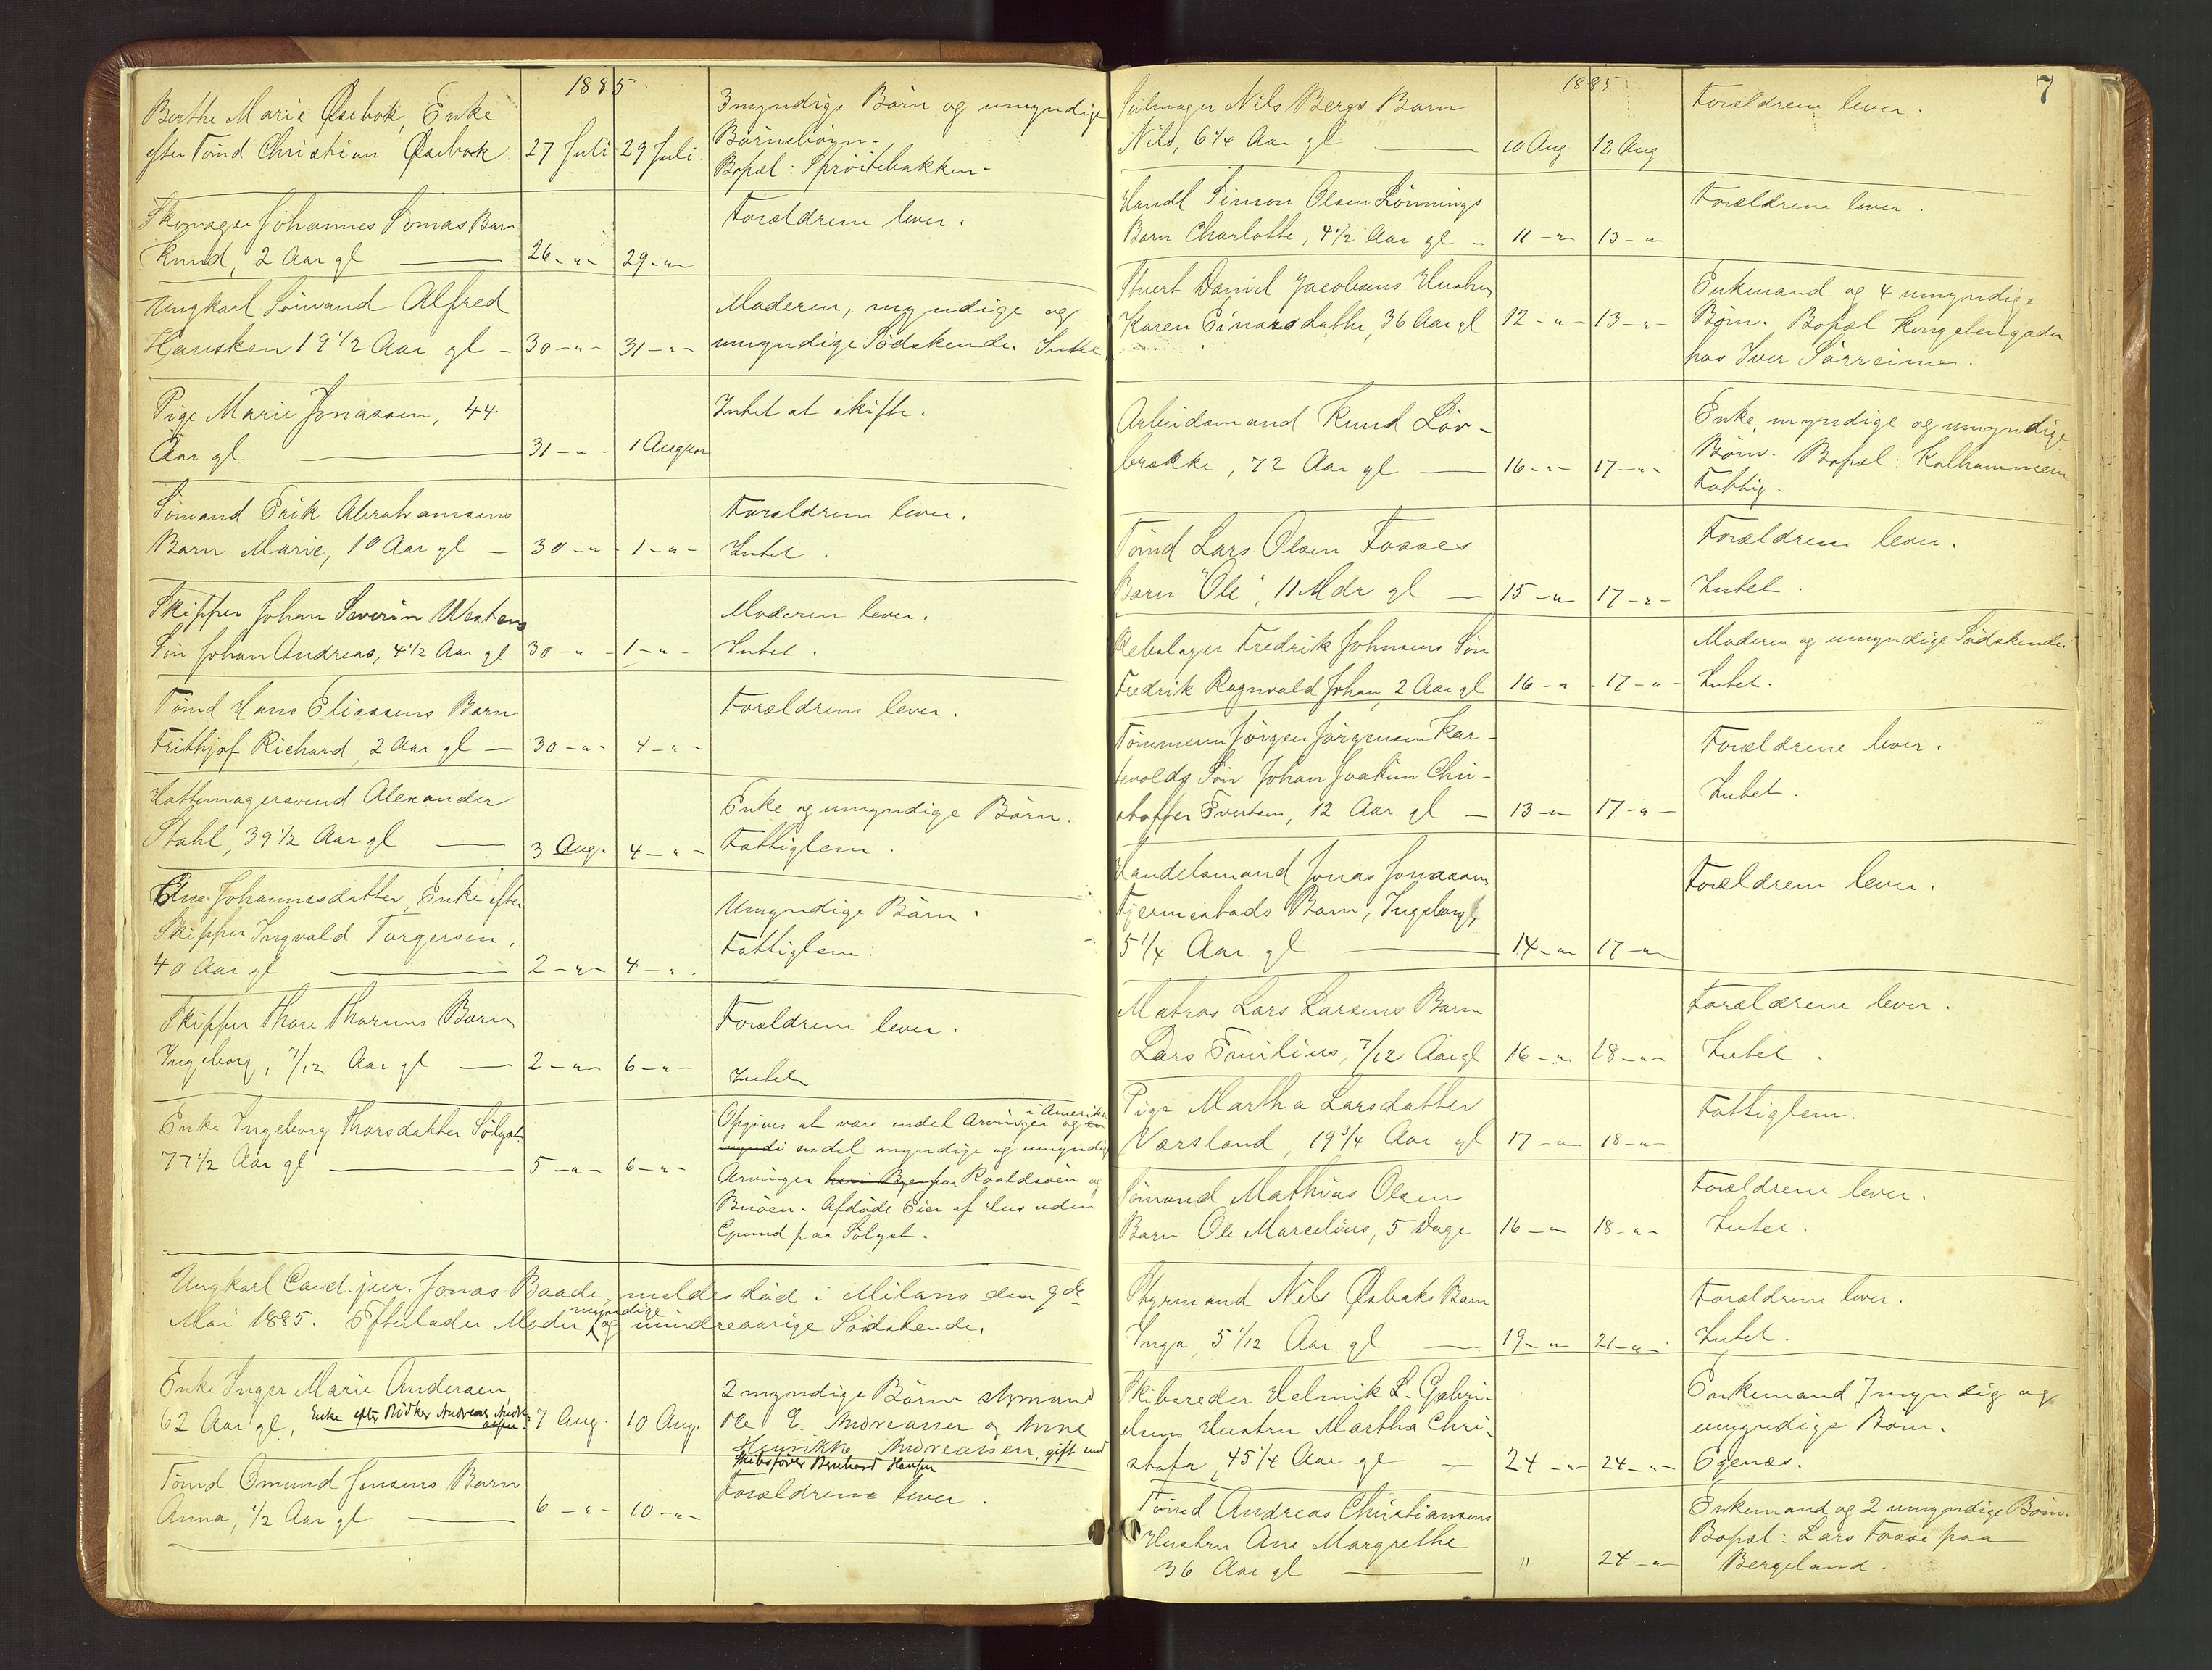 1885
Berthe Marie Øsebok, Enke
efter Tømd Christian Øsebok. 27 Juli 29 Juli
3 myndige Børn og umyndige
Børnebørn.
Bopæl: Sprøitebakken.
Skomager Johannes Somas Barn
Knud, 2 Aar gl — 26 - " - 29 - " -
Forældrene lever.
Ungkarl Sømand Alfred
Hausken 19 1/2 Aar gl - 30 - " - 31 - " -
Moderen, myndige og
umyndige Sødskende. Intet
Pige Marie Jonassen, 44
Aar gl — 31 - " - 1 August
Intet at skifte.
Sømand Erik Abrahamsens
Barn Marie, 10 Aar gl — 30 - " - 1 - " -
Forældrene lever.
Intet.
Skipper Johan Severin
Søn Johan Andreas, 4 1/2 Aar gl 30 - " - 1 - " -
Moderen lever.
Intet.
Tømd Hans Eliassens Barn
Frithjof Richard, 2 Aar gl — 30 - " - 4 - " -
Forældrene lever.
Hattemagersvend Alexander
Stahl, 39 1/2 Aar gl — 3 Aug. 4 - " -
Enke og umyndige Børn.
Fattiglem.
Johannesdatter, Enke efter
Skipper Ingvald Torgersen,
40 Aar gl — 2 - " - 4 - " -
Umyndige Børn.
Fattiglem.
Skipper Thore Thorsens Barn
Ingeborg, 7/12 Aar gl — 2 - " - 6 - " -
Forældrene lever.
Intet
Enke Ingeborg Thorsdatter Sølyst
77 1/2 Aar gl — 5 - " - 6 - " -
Opgives at være endel Arvinger i Amerika og en
myndi endel myndige og umyndige
Arvinger Roaldsøen og
Buøen. Afdøde Eier af Hus uden
Grund paa Sølyst.
Ungkarl Cand. jur. Jonas Baade, meldes død i Milano den 9de
Mai 1885. Efterlader Moder, myndige og mindreaarige Sødskende.
Enke Inger Marie Andersen,
62 Aar gl, Enke efter Bødker Andreas Andreassen. 7 Aug. 10 Aug.
2 myndige Børn Styrmand
Ole E. Andreassen og Anne
Henrikke Andreassen, gift med
Skibsfører Bernhard Hansen
Tømd Omund Jensens Barn
Anna, 1/2 Aar gl — 6 - " - 10 - " -
Forældrene lever.
7
1885
Seilmager Nils Bergs Barn
Nils, 6 1/4 Aar gl — 10 Aug 12 Aug
Forældrene lever.
Handl Simon Olsen Lønnings
Barn Charlotte, 4 1/2 Aar gl — 11 - " 13 - "
Forældrene lever.
Stuert Daniel Jacobsens Hustru
Karen Einarsdatter, 36 Aar gl 12 - " - 13 - " -
Enkemand og 4 umyndige
Børn. Bopæl Kongsberggaden
hos Iver Sørreimer.
Arbeidsmand Knud Løv-
brække, 72 Aar gl — 16 - " - 17 - " -
Enke, myndige og umyndige
Børn. Bopæl: Kalhammeren
Fattig.
Tømd Lars Olsen Fosses
Barn "Ole", 11 Mdr gl — 15 - " 17 - " -
Forældrene lever.
Intet.
Rebslager Fredrik Johnsens Søn
Fredrik Ragnvald Johan, 2 Aar gl 16 - " 17 - " -
Moderen og umyndige Sødskende.
Intet.
Tømmerm Jørgen Jørgensen Kar-
tevolds Søn Johan Joakim Chri-
stoffer Evertsen, 12 Aar gl — 13 - " 17 - " -
Forældrene lever.
Intet.
Handelsmand Jonas Jonassen
Fjermestads Barn, Ingeborg,
5 1/4 Aar gl — 14 - " 17 - "
Forældrene lever.
Matros Lars Larsens Barn
Lars Emilius, 7/12 Aar gl 16 - " 18 - " -
Forældrene lever.
Intet.
Pige Martha Larsdatter
Varsland, 19 3/4 Aar gl 17 - " 18 - " -
Fattiglem.
Sømand Mathias Olsen
Barn Ole Marselius, 5 Dage 16 - " 18 - " -
Forældrene lever.
Intet.
Styrmand Nils Øsboks Barn
Inga, 5 1/12 Aar gl — 19 - " 21 - " -
Forældrene lever.
Intet.
Skibsreder Helmik L. Gabri-
elsens Hustru Martha Chri-
stofa, 45 1/4 Aar gl — 24 - " - 24 - " -
Enkemand, 1 myndig og
umyndige Børn.
Egenæs.
Tømd Andreas Christiansens
Hustru Ane Margrethe
36 Aar gl — " 24 - "
Enkemand og 2 umyndige Børn.
Bopæl: Lars Fosse paa
Bergeland.